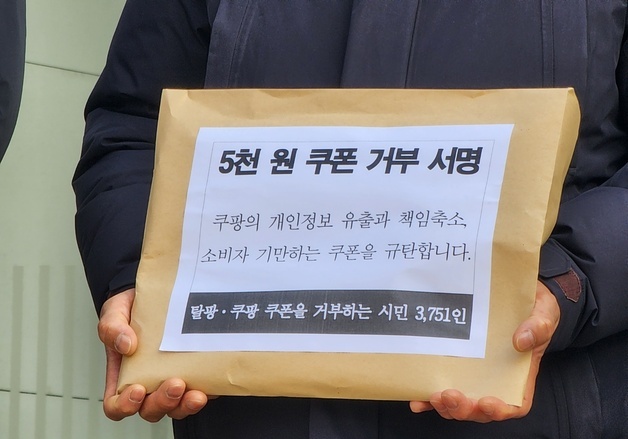 5천 원 쿠폰 거부 서명
쿠팡의 개인정보 유출과 책임축소,
소비자 기만하는 쿠폰을 규탄합니다.
탈팡·쿠팡 쿠폰을 거부하는 시민 3,751인